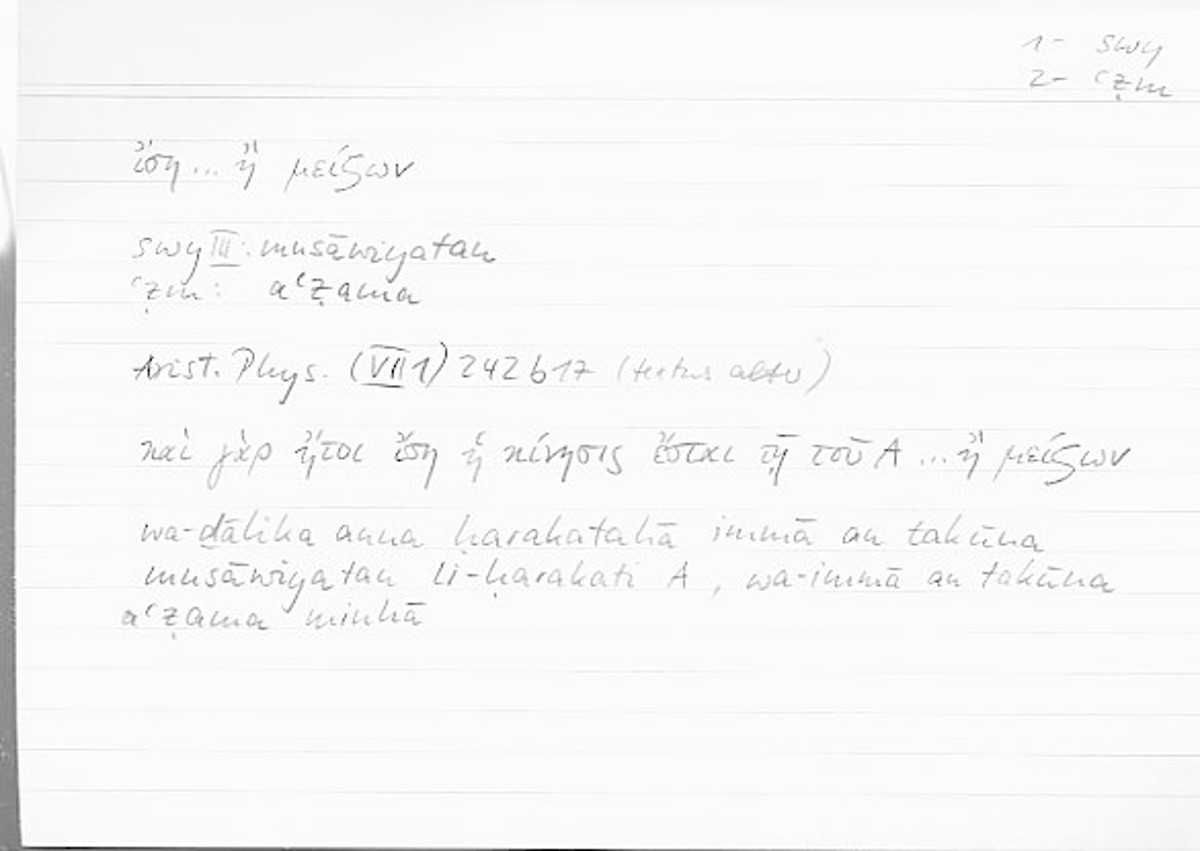 1- swy
2- ʿẓm
ἴση ... ἢ μείζων
swy III: musāwiyatan
ʿẓm: aʿẓama
Arist. Phys. (VII 1) 242 b 17 (textus alter)
καὶ γὰρ ἤτοι ἴση ἡ κίνησις ἔσται τῇ τοῦ A ... ἢ μείζων
wa-ḏālika anna ḥarakatahā immā an takūna
musāwiyatan li-ḥarakati A, wa-immā an takūna
aʿẓama minhā